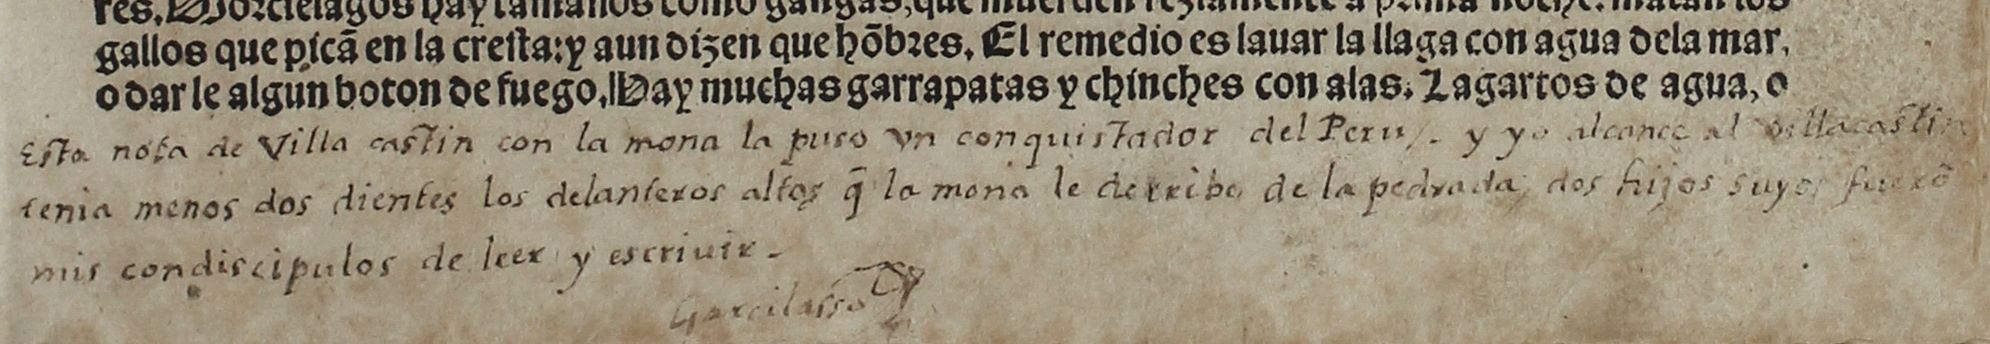 res. Morcielagos hay tamaños como gangas, que muerden reziamente a prima noche: matan los
gallos que picā en la cresta: y aun dizen que hōbres. El remedio es lauar la llaga con agua dela mar,
o dar le algun boton de fuego. Hay muchas garrapatas y chinches con alas. Lagartos de agua, o
Esta nota de Villa castin con la mona la puso vn conquistador del Peru/. y yo alcance al Villacastin
tenia menos dos dientes los delanteros altos q̄ la mona le derribo de la pedrada, dos hijos suyos fuerō
mis condiscipulos de leer y escriuir.-
Garcilasso